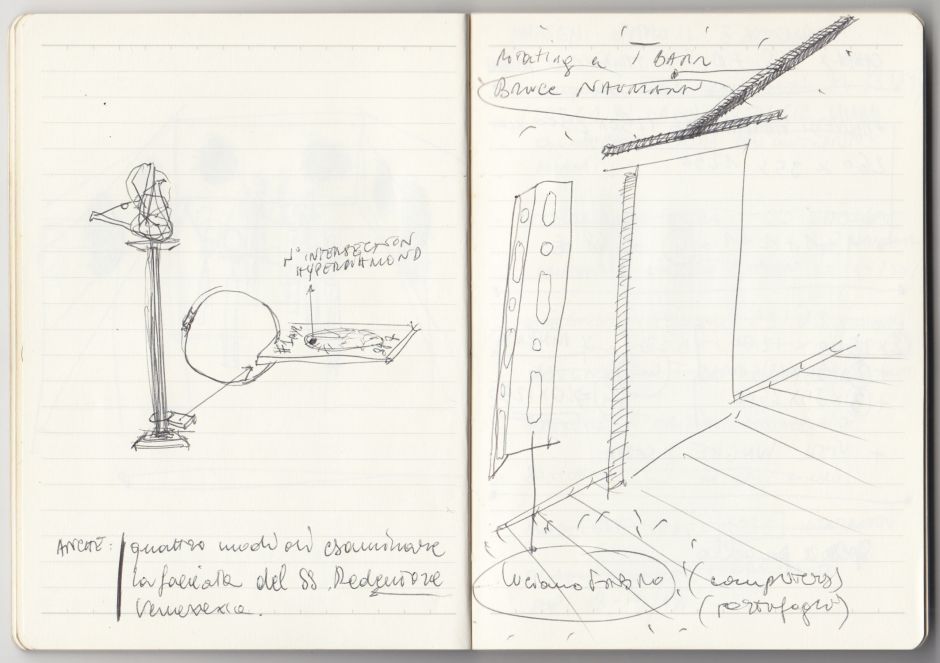 INTERSECTION
HYPERDIAMOND
ANCHE: quattro modi di esaminare
la facciata del SS. Redentore
rotating a T BARR
Bruce NAUMANN
Luciano Fabro (computers)